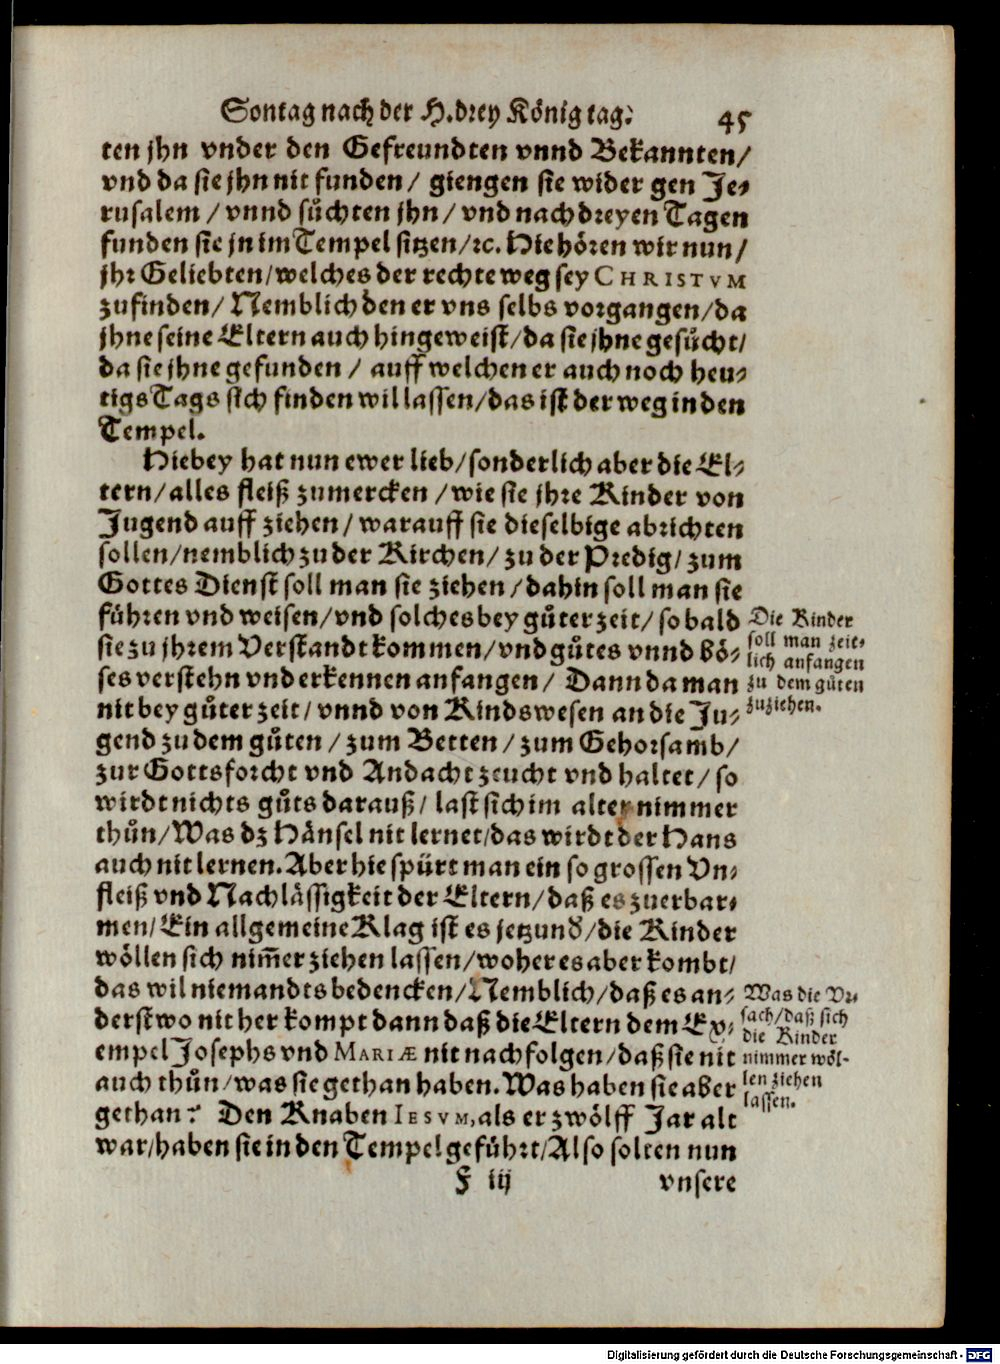 Sontag nach der H. drey König tag. 45
ten jhn vnder den Gefreundten vnnd Bekannten/
vnd da sie jhn nit funden/ giengen sie wider gen Je-
rusalem/ vnnd sůchten jhn/ vnd nach dreyen Tagen
funden sie jn im Tempel sitzen/ ꝛc. Hie hören wir nun/
jhr Geliebten/ welches der rechte weg sey CHRISTVM
zufinden/ Nemblich den er vns selbs vorgangen/ da
jhne seine Eltern auch hingeweist/ da sie jhne gesůcht/
da sie jhne gefunden/ auff welchen er auch noch heu-
tigs Tags sich finden wil lassen/ das ist der weg in den
Tempel.
Hiebey hat nun ewer lieb/ sonderlich aber die El-
tern/ alles fleiß zumercken/ wie sie jhre Kinder von
Jugend auff ziehen/ warauff sie dieselbige abrichten
sollen/ nemblich zu der Kirchen/ zu der Predig/ zum
Gottes Dienst soll man sie ziehen/ dahin soll man sie
führen vnd weisen/ vnd solches bey gůter zeit/ so bald
sie zu jhrem Verstandt kommen/ vnd gůtes vnnd bö-
ses verstehn vnd erkennen anfangen/ Dann da man
nit bey gůter zeit/ vnnd von Kindswesen an die Ju-
gend zu dem gůten/ zum Betten/ zum Gehorsamb/
zur Gottsforcht vnd Andacht zeucht vnd haltet/ so
wirdt nichts gůts darauß/ last sich im alter nimmer
thůn/ Was dz Hänsel nit lernet/ das wirdt der Hans
auch nit lernen. Aber hie spürt man ein so grossen Vn-
fleiß vnd Nachlässigkeit der Eltern/ daß es zuerbar-
men/ Ein allgemeine Klag ist es jetzund/ die Kinder
wöllen sich nim̄er ziehen lassen/ woher es aber kombt/
das wil niemandts bedencken/ Nemblich/ daß es an-
derstwo nit her kompt dann daß die Eltern dem Ex-
empel Josephs vnd MARIÆ nit nachfolgen/ daß sie nit
auch thůn/ was sie gethan haben. Was haben sie aber
gethan? Den Knaben IESVM, als er zwölff Jar alt
war/ haben sie in den Tempel geführt/ Also solten nun
F iij vnsere
Die Kinder
soll man zeit-
lich anfangen
zu dem gůten
zuziehen.
Was die Vr-
sach/ daß sich
die Kinder
nimmer wöl-
len ziehen
lassen.
Digitalisierung gefördert durch die Deutsche Forschungsgemeinschaft - DFG